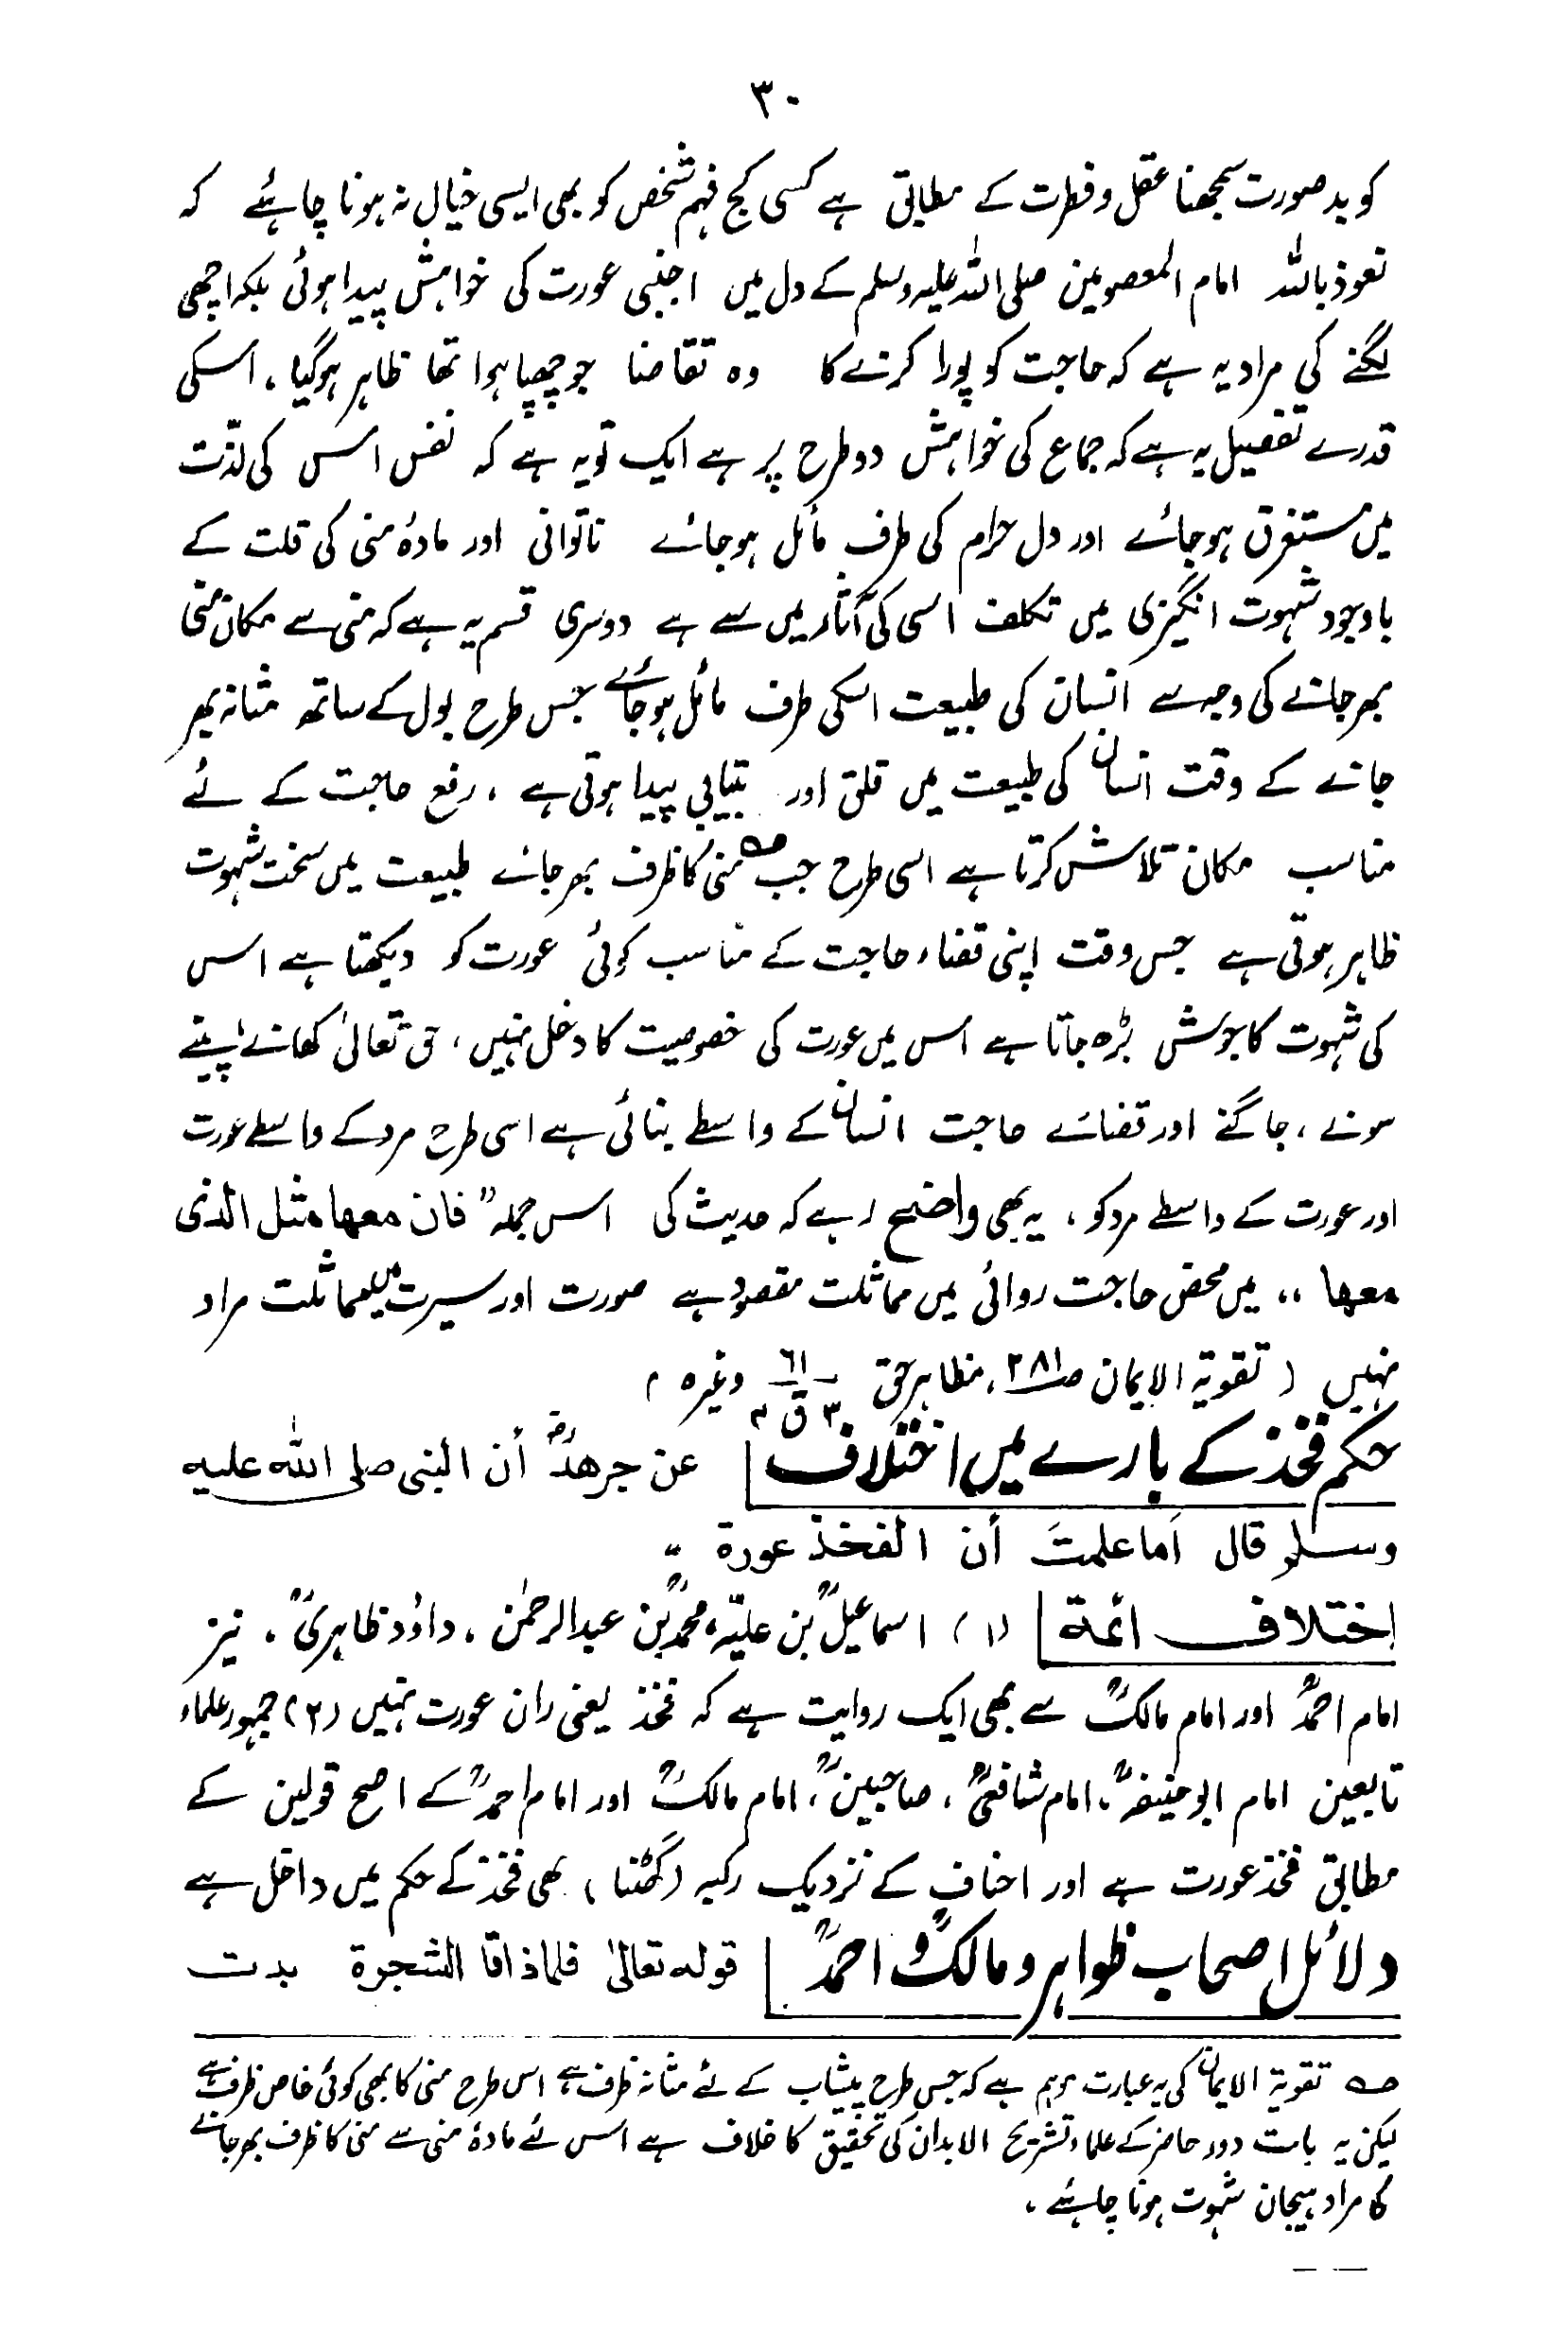 ۳۰
کو بد صورت سمجھنا عقل و فطرت کے مطابق ہے کسی کج فہم شخص کو بھی ایسی خیال نہ ہونا چاہئے کہ
نعوذ باللہ امام المعصومین صلی اللہ علیہ وسلم کے دل میں اجنبی عورت کی خواہش پیدا ہوئی بلکہ اچھی
لگنے کی مراد یہ ہے کہ حاجت کو پورا کرنے کا وہ تقاضا جو چھپا ہوا تھا ظاہر ہوگیا، اسکی
قدرے تفصیل یہ ہے کہ جماع کی خواہش دو طرح پر ہے ایک تو یہ ہے کہ نفس اس کی لذّت
میں مستغرق ہو جائے اور دل حرام کی طرف مائل ہو جائے ناتوانی اور مادۂ منی کی قلت کے
باوجود شہوت انگیزی میں تکلف اسی کی آثار میں سے ہے دوسری قسم یہ ہے کہ منی سے مکان منی
بھر جانے کی وجہ سے انسان کی طبیعت اسکی طرف مائل ہو جائے جس طرح بول کے ساتھ مثانہ بھر
جانے کے وقت انسان کی طبیعت میں قلق اور بیتابی پیدا ہوتی ہے، رفع حاجت کے لئے
مناسب مکان تلاش کرتا ہے اسی طرح جب منی کا ظرف بھر جائے طبیعت میں سخت شہوت
ظاہر ہوتی ہے جس وقت اپنی قضاء حاجت کے مناسب کوئی عورت کو دیکھتا ہے اس
کی شہوت کا جوش بڑھ جاتا ہے اس میں عورت کی خصوصیت کا دخل نہیں، حق تعالیٰ کھانے پینے
سونے، جاگنے اور قضائے حاجت انسان کے واسطے بنائی ہے اسی طرح مرد کے واسطے عورت
اور عورت کے واسطے مرد کو، یہ بھی واضح رہے کہ حدیث کی اس جملہ ”فان معھا مثل الذی
معھا ،، میں محض حاجت روائی میں مماثلت مقصود ہے صورت اور سیرت میں مماثلت مراد
نہیں ( تقویۃ الایمان صـ۲۸۱، مظاہر حق ٦١ ۳ ق ۳ وغیرہ )
حکم فخذ کے بارے میں اختلاف عن جرھدؓ أن النبی صلی اللہ علیہ
وسلم قال اَما علمتَ أن الفخذ عورة ۔
إختلاف ائمة (۱) اسماعیلؒ بن علیّہ، محمدؒ بن عبدالرحمٰن، داؤد ظاہریؒ، نیز
امام احمدؒ اور امام مالکؒ سے بھی ایک روایت ہے کہ فخذ یعنی ران عورت نہیں (۲) جمہور علماء
تابعین امام ابو حنیفہؒ، امام شافعیؒ، صاحبینؒ، امام مالکؒ اور امام احمدؒ کے اصح قولین کے
مطابق فخذ عورت ہے اور احناف کے نزدیک رکبہ (گھٹنا) بھی فخذ کے حکم میں داخل ہے
دلائل اصحاب ظواہر و مالکؒ و احمدؒ قوله تعالیٰ فلما ذاقا الشجرة بدت
صـہ تقویۃ الایمان کی یہ عبارت موہم ہے کہ جس طرح پیشاب کے لئے مثانہ ظرف ہے اس طرح منی کا بھی کوئی خاص ظرف ہے
لیکن یہ بات دور حاضر کے علماء تشریح الابدان کی تحقیق کا خلاف ہے اس لئے مادۂ منی سے منی کا ظرف بھر جانے
کا مراد ہیجان شہوت ہونا چاہئے ،